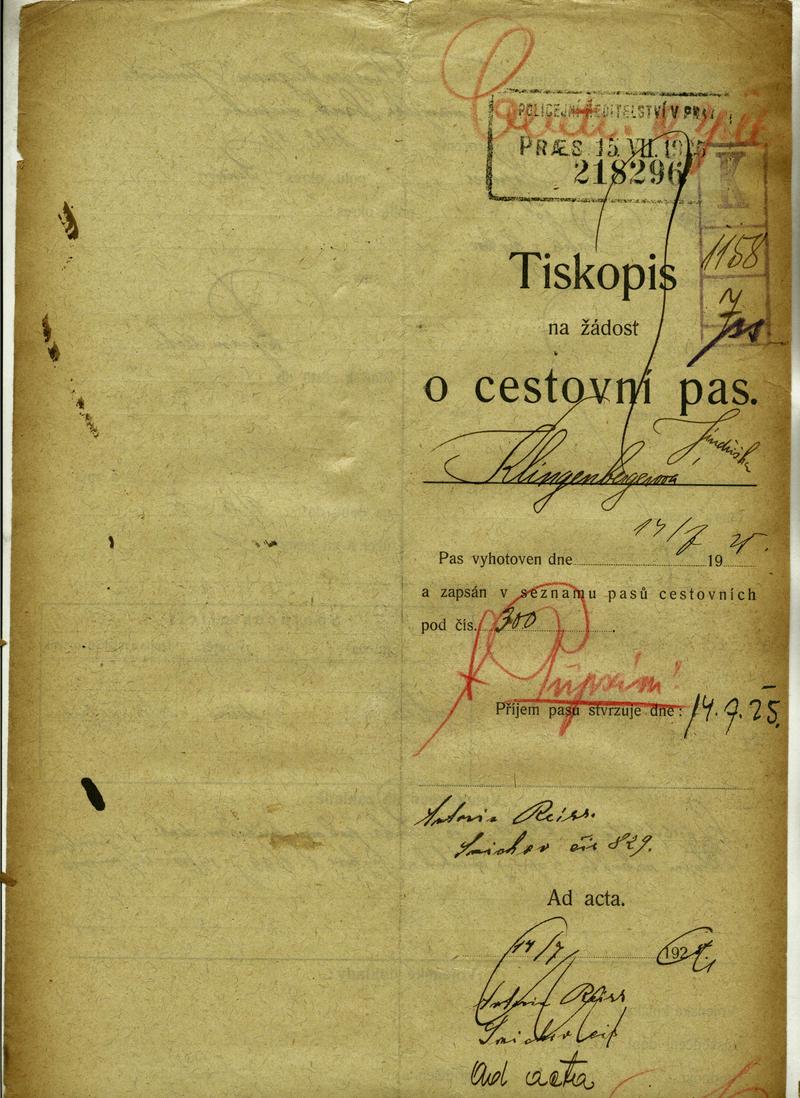 POLICEJNÍ ŘEDITELSTVÍ V PRAZE
PRÆS 15.VII.1925
218296
K
1158
7
Tiskopis
na žádost
o cestovní pas.
Klingenbergerová Jindřiška
Pas vyhotoven dne 14/7 1925.
a zapsán v seznamu pasů cestovních
pod čís. 300
Příjem pasu stvrzuje dne: 14.7.25.
Antonín Reiss.
Smíchov čís 829.
Ad acta.
14/7 1925.
Antonín Reiss
Smíchov čís
Ad acta